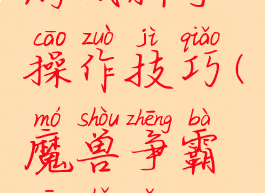 cāo zuò jì qiǎo
操作技巧(
mó shòu zhēng bà
魔兽争霸